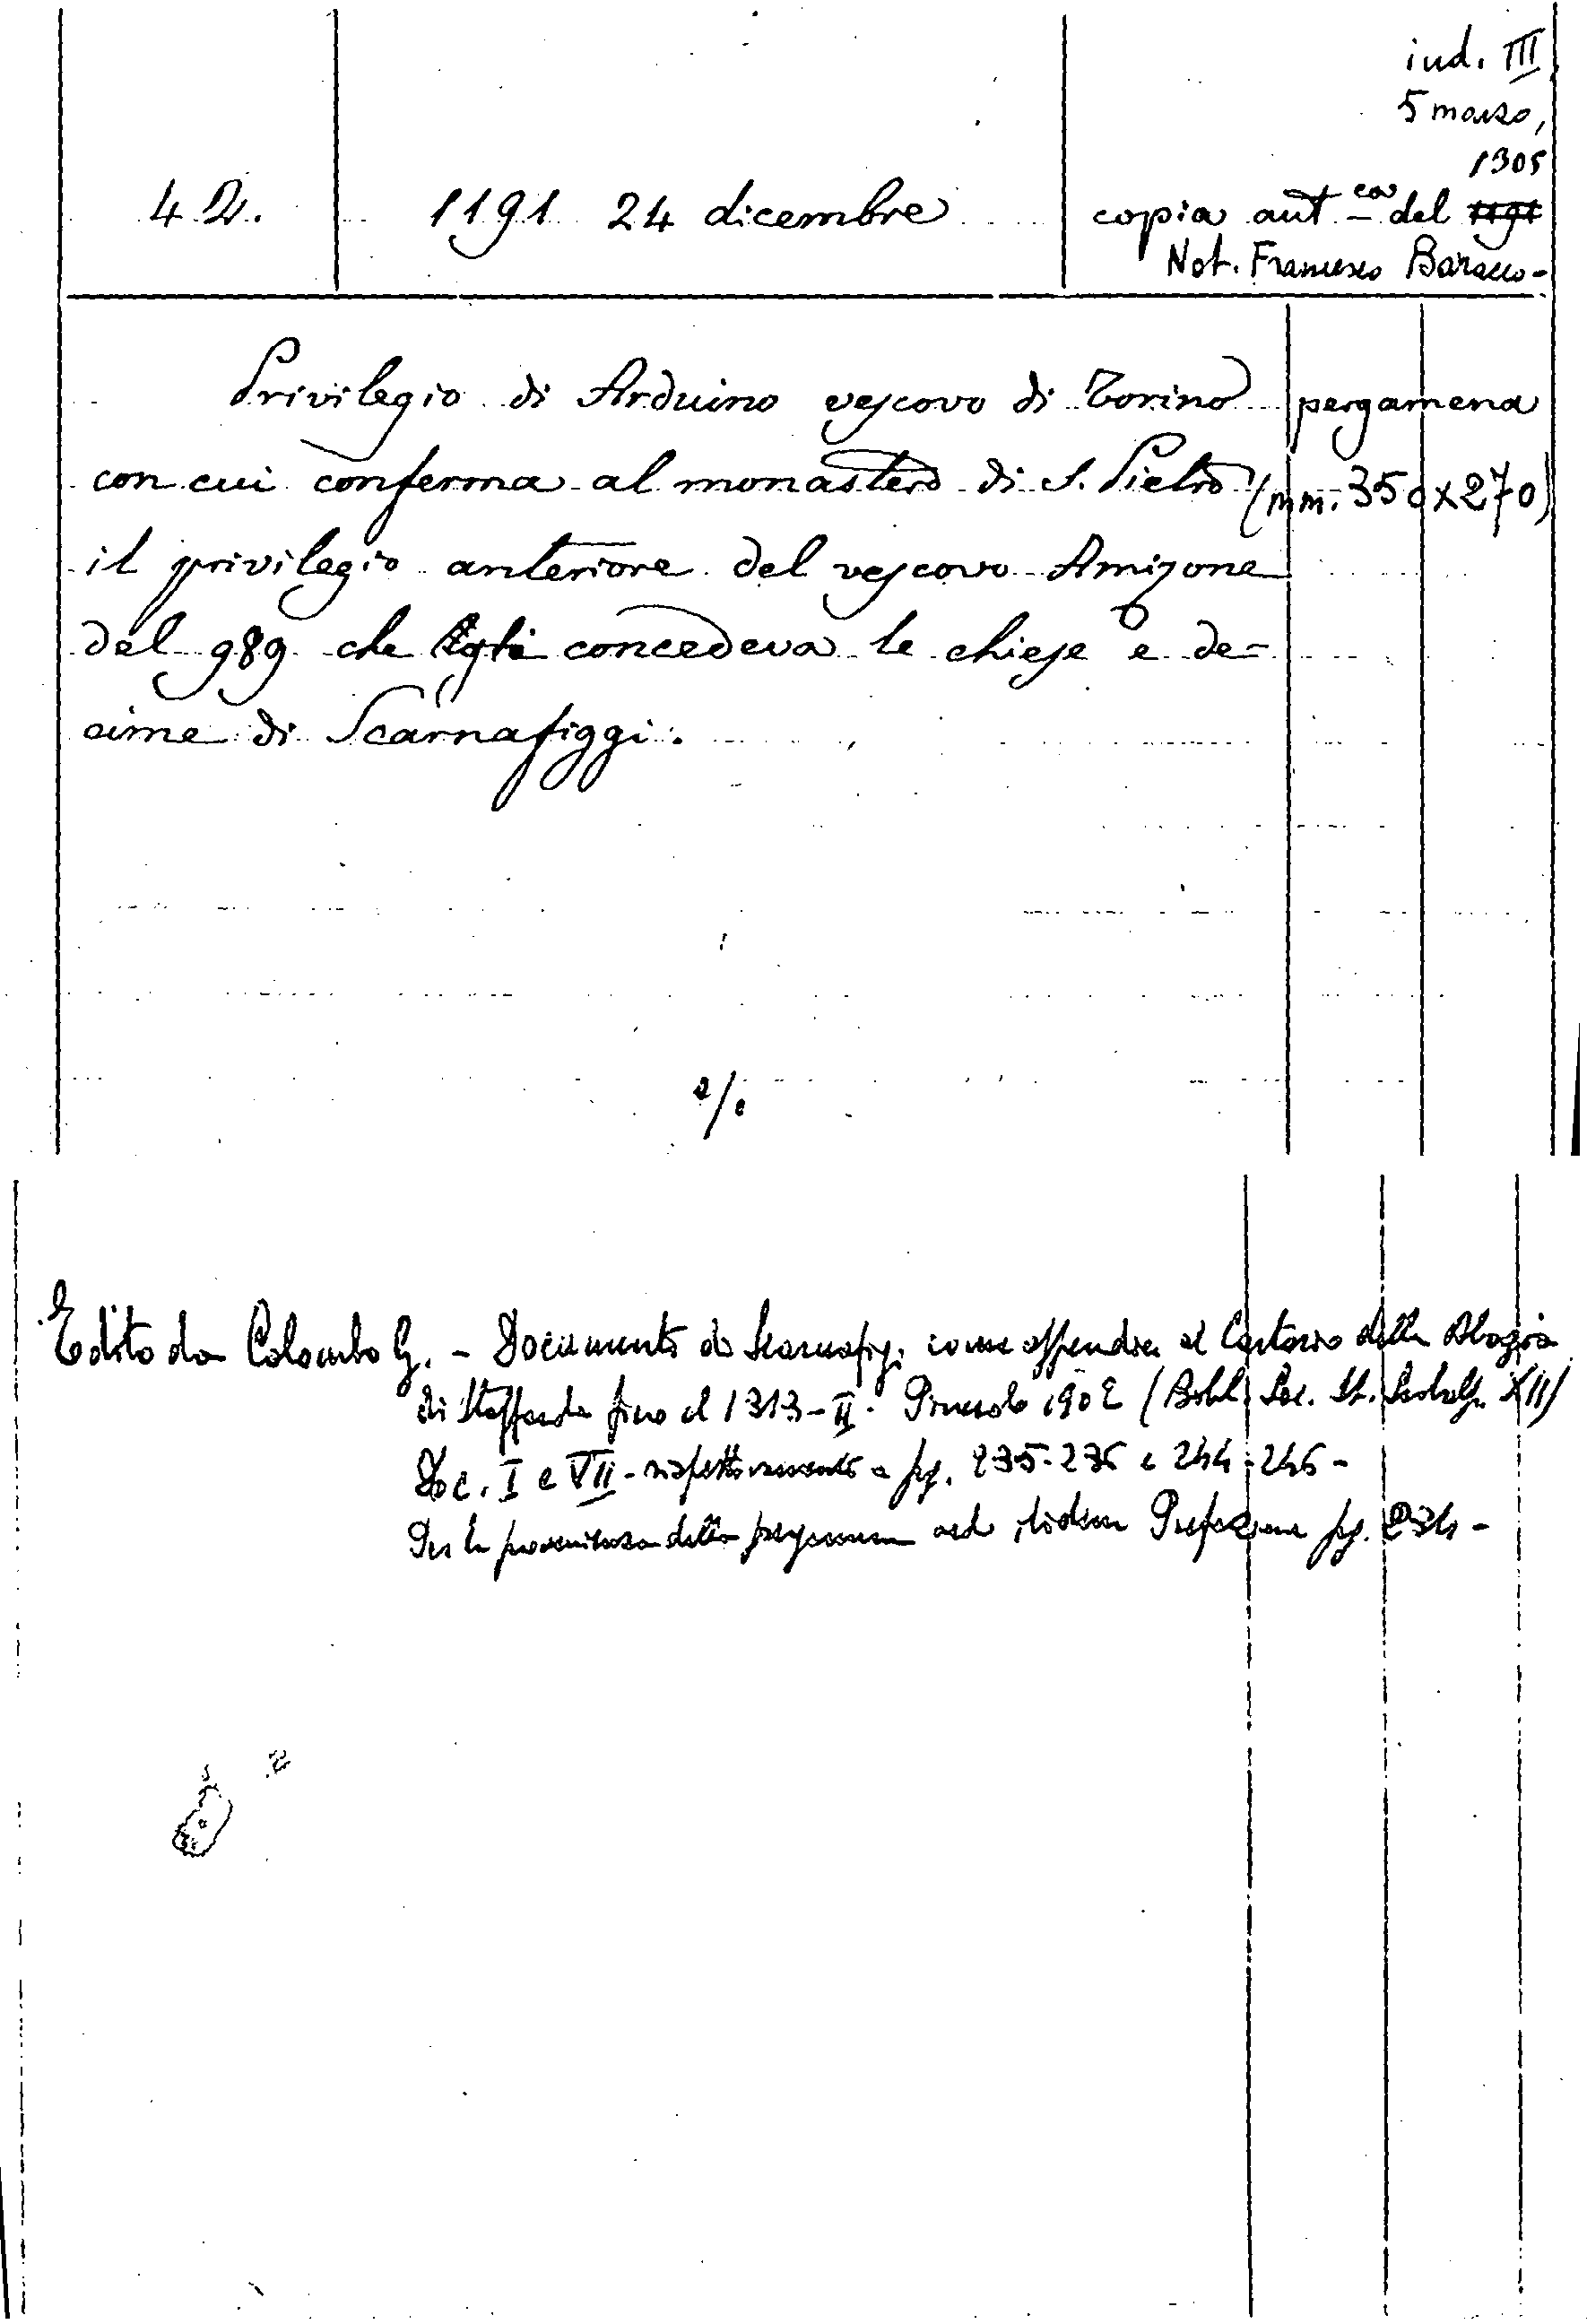 ind. III
5 marzo,
1305
42. 1191 24 dicembre copia aut ca del 1191
Not. Francesco Baracco-
Privilegio di Arduino vescovo di Torino pergamena
con cui conferma al monastero di S. Pietro (mm. 350x270)
il privilegio anteriore del vescovo Amizone
del 989 che gli concedeva le chiese e de-
cime di Scarnafiggi.
Edito da Colombo G. - Documenti di Scarnafigi come appendice al Cartario della Abazia
di Staffarda fino al 1313 - II. Pinerolo 1902 (Bibl. Soc. St. Subalp. XII)
Doc. I e VII - rispettivamente a pg. 235-236 e 244-246 -
Per la provenienza della pergamena ved. ibidem Prefazione pg. 234 -